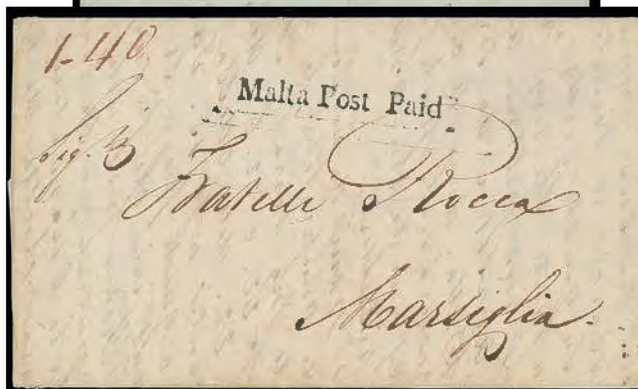 1-40
Malta Post Paid
Sig.
Fratelli Rocca
Marsiglia.